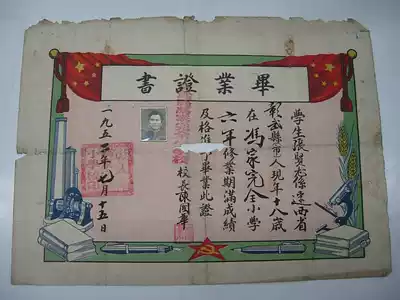 畢業證書
學生張賢杰係遼西省
彰武縣市人現年十八歲
在馮家完全小學
六年修業期滿成績
及格准予畢業此證
校長陳國華
一九五二年七月十五日